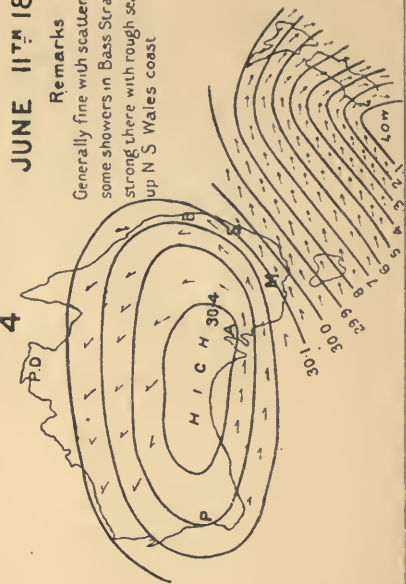 4
JUNE 11TH 18
Remarks
Generally fine with scatter
some showers in Bass Stra
strong there with rough se
up N S Wales coast
P.D
HIGH
30.4
P
A
B
S
M
LOW
30.1
30.0
29.9
8
7
6
5
4
3
2
.1